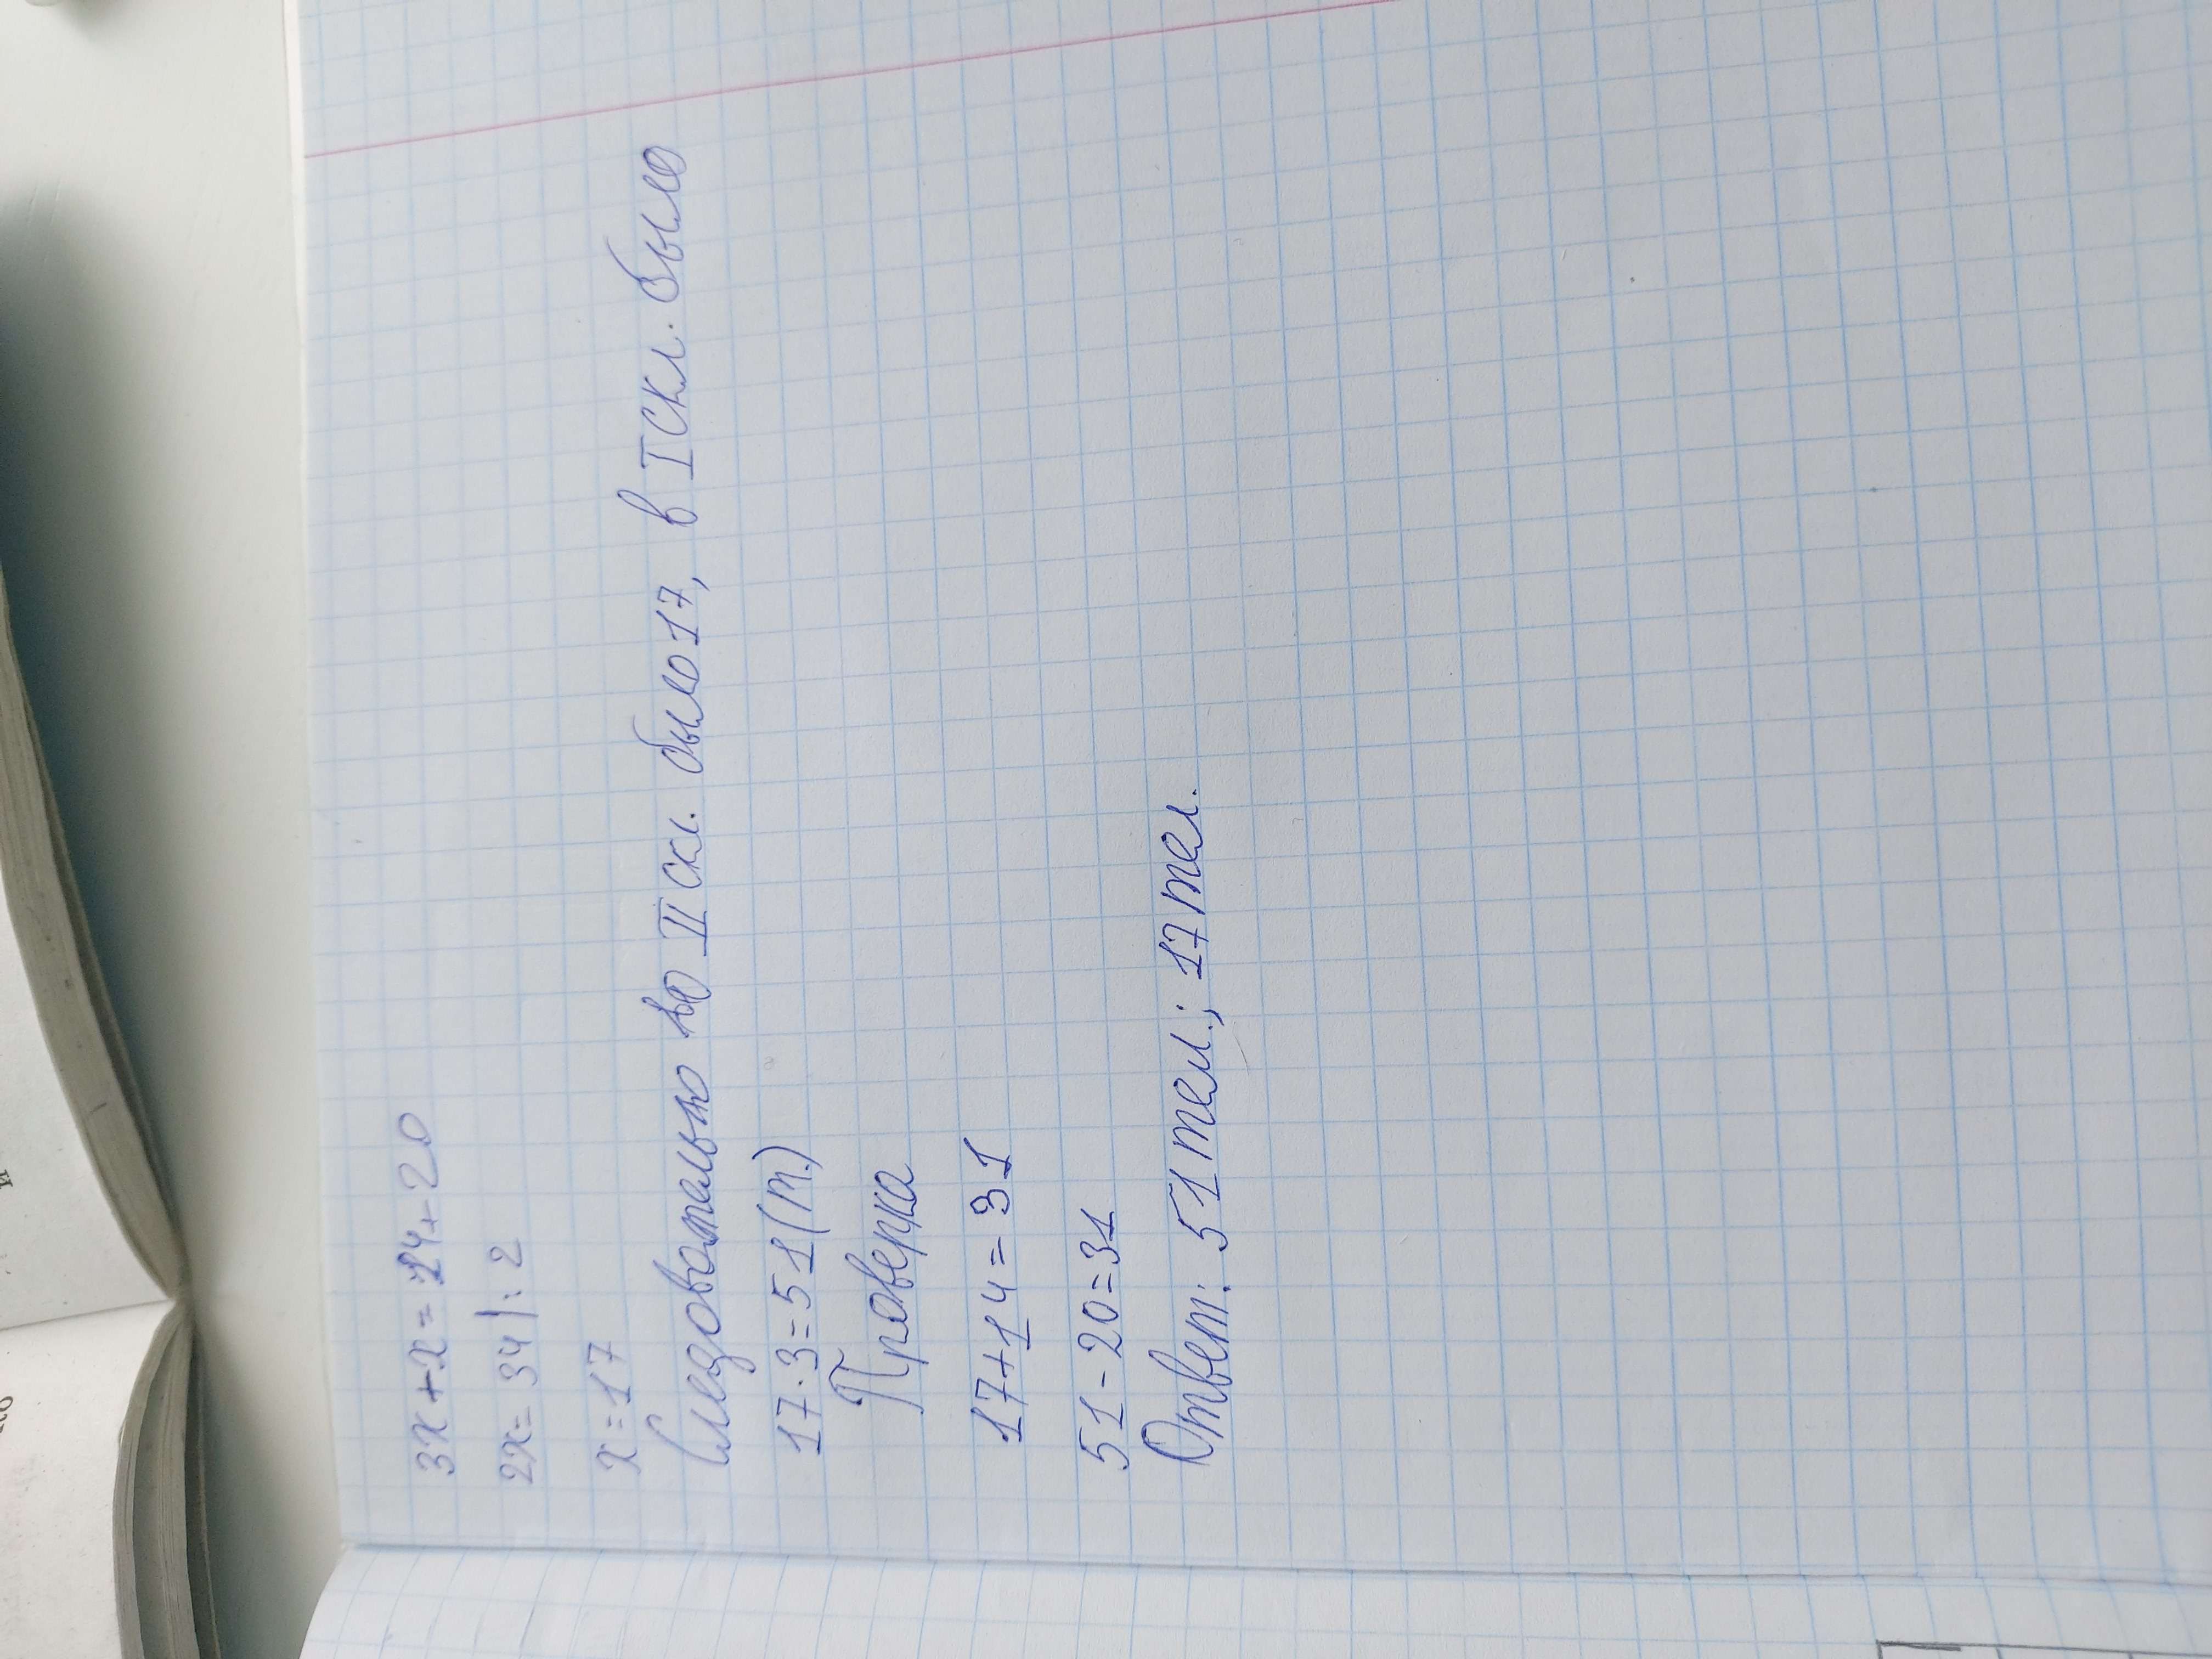 3x+x=14+20
2x=34|:2
x=17
Следовотально во II скл. было 17, в I скл. было
17·3=51(т.)
Проверка
17+14=31
51-20=31
Ответ: 51 тел.; 17 тел.